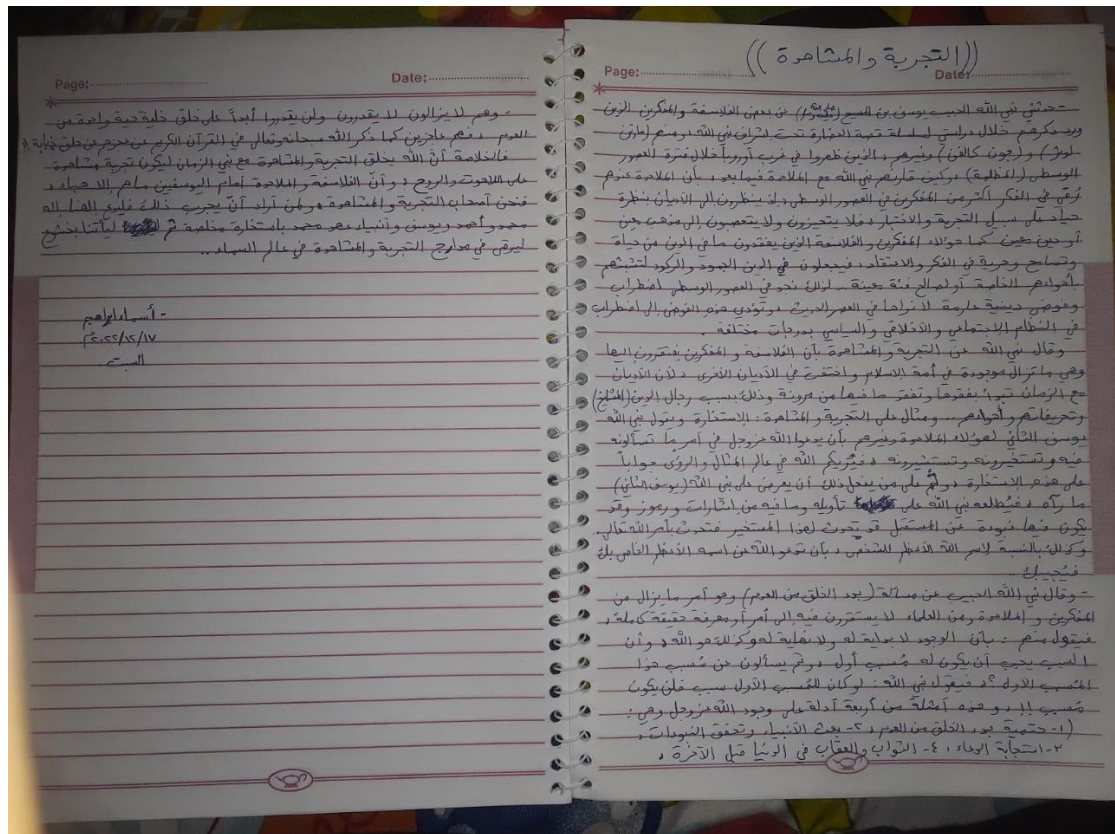 ((التجربة والمشاهدة))
Page: Date:
- حدثني نبي الله الحبيب يوسف بن المسيح (ﷺ) عن بعض الفلاسفة والمفكرين الذين
ورد ذكرهم خلال دراستي لسلسلة قصة الحضارة تحت إشراف نبي الله، ومنهم (مارتن
لوثر) و(جون كالفن) وغيرهم، الذين ظهروا في غرب أوروبا خلال فترة العصور
الوسطى (المظلمة)، وكيف قارنهم نبي الله مع الملاحدة فيما بعد، بأن الملاحدة عندهم
رُقي في الفكر أكثر من المفكرين في العصور الوسطى، لا ينظرون إلى الأديان بنظرة
حياد على سبيل التجربة والاختبار، فلا يتحيزون ولا يتعصبون إلى مذهب معين
أو دين معين كما هؤلاء المفكرين والفلاسفة الذين يفقدون ما في الدين من حياة
وتسامح وحرية في الفكر والاعتقاد، فيجعلون في الدين الجمود والركود لتشبثهم
بأهوائهم الخاصة أو لصالح فئة معينة.. لذلك نجد في العصور الوسطى اضطراب
وفوضى دينية عارمة لا نراها في العصر الحديث، وتؤدي هذه الفوضى إلى اضطراب
في النظام الاجتماعي والأخلاقي والسياسي بدرجات مختلفة.
وقال نبي الله عن التجربة والمشاهدة بأن الفلاسفة والمفكرين يفتقرون إليها
وهي ما تزال موجودة في أمة الإسلام واختفت في الأديان الأخرى، لأن الأديان
مع الزمان تبدأ بفقدها وتفقد ما فيها من مرونة وذلك بسبب رجال الدين (المشايخ)
وتحريفاتهم وأهوائهم.. ومثال على التجربة والمشاهدة: الاستخارة ويقول نبي الله
يوسف الثاني لهؤلاء الملاحدة وغيرهم بأن يدعوا الله عز وجل في أمر ما تسألونه
فيه وتستخيرونه وتستشيرونه، فيُريكم الله في عالم المثال والرؤى جواباً
على هذه الاستخارة، ثم على من يفعل ذلك أن يعرض على نبي الله (يوسف الثاني)
ما رآه، فيُطلعه نبي الله على تأويله وما فيه من إشارات ورموز وقد
يكون فيها نبوءة عن المستقبل قد تحدث لهذا المستخير فتحدث بأمر الله تعالى.
وكذلك بالنسبة لاسم الله الأعظم للشخص، بأن تدعو الله عن اسمه الأعظم الخاص بك
فيُجيبك.
- وقال نبي الله الحبيب عن مسألة (بدء الخلق من العدم) وهو أمر ما يزال من
المفكرين والملاحدة ومن العلماء لا يستقرون فيه إلى أمر أو معرفة حقيقة كاملة،
فيقول منهم: بأن الوجود لا بداية له ولا نهاية له وكذلك هو الله، وأن
السبب يجب أن يكون له مُسبب أول، ثم يسألون عن مُسبب هذا
المُسبب الأول؟، فيقول نبي الله: لو كان للمُسبب الأول سبب فلن يكون
مُسبب!!، وهذه أمثلة من أربعة أدلة على وجود الله عز وجل وهي:
(١- حتمية بدء الخلق من العدم، ٢- بعث الأنبياء وتحقق النبوءات،
٣- استجابة الدعاء، ٤- الثواب والعقاب في الدنيا قبل الآخرة،
Page: Date:
وهم لا يزالون لا يقدرون ولن يقدروا أبداً على خلق خلية حية واحدة من
العدم، فهم عاجزين كما ذكر الله سبحانه وتعالى في القرآن الكريم عن عجزهم عن خلق ذبابة!!
فالخلاصة أنّ الله يخلق التجربة والمشاهدة مع نبي الزمان ليكون تجربة مشاهدة
على اللاهوت والروح، وأنّ الفلاسفة والملاحدة أمام اليوسفيين ما هم إلا هباء،
فنحن أصحاب التجربة والمشاهدة، ولمن أراد أنّ يجرب ذلك فليدع إلهنا إله
محمد وأحمد ويوسف وأنبياء عهد محمد باستخارة مخلصة ثم ليأتنا بخشوع
ليرقى في مدارج التجربة والمشاهدة في عالم السماء..
- أسماء إبراهيم
٢٠٢٢/١٢/١٧م
السبت